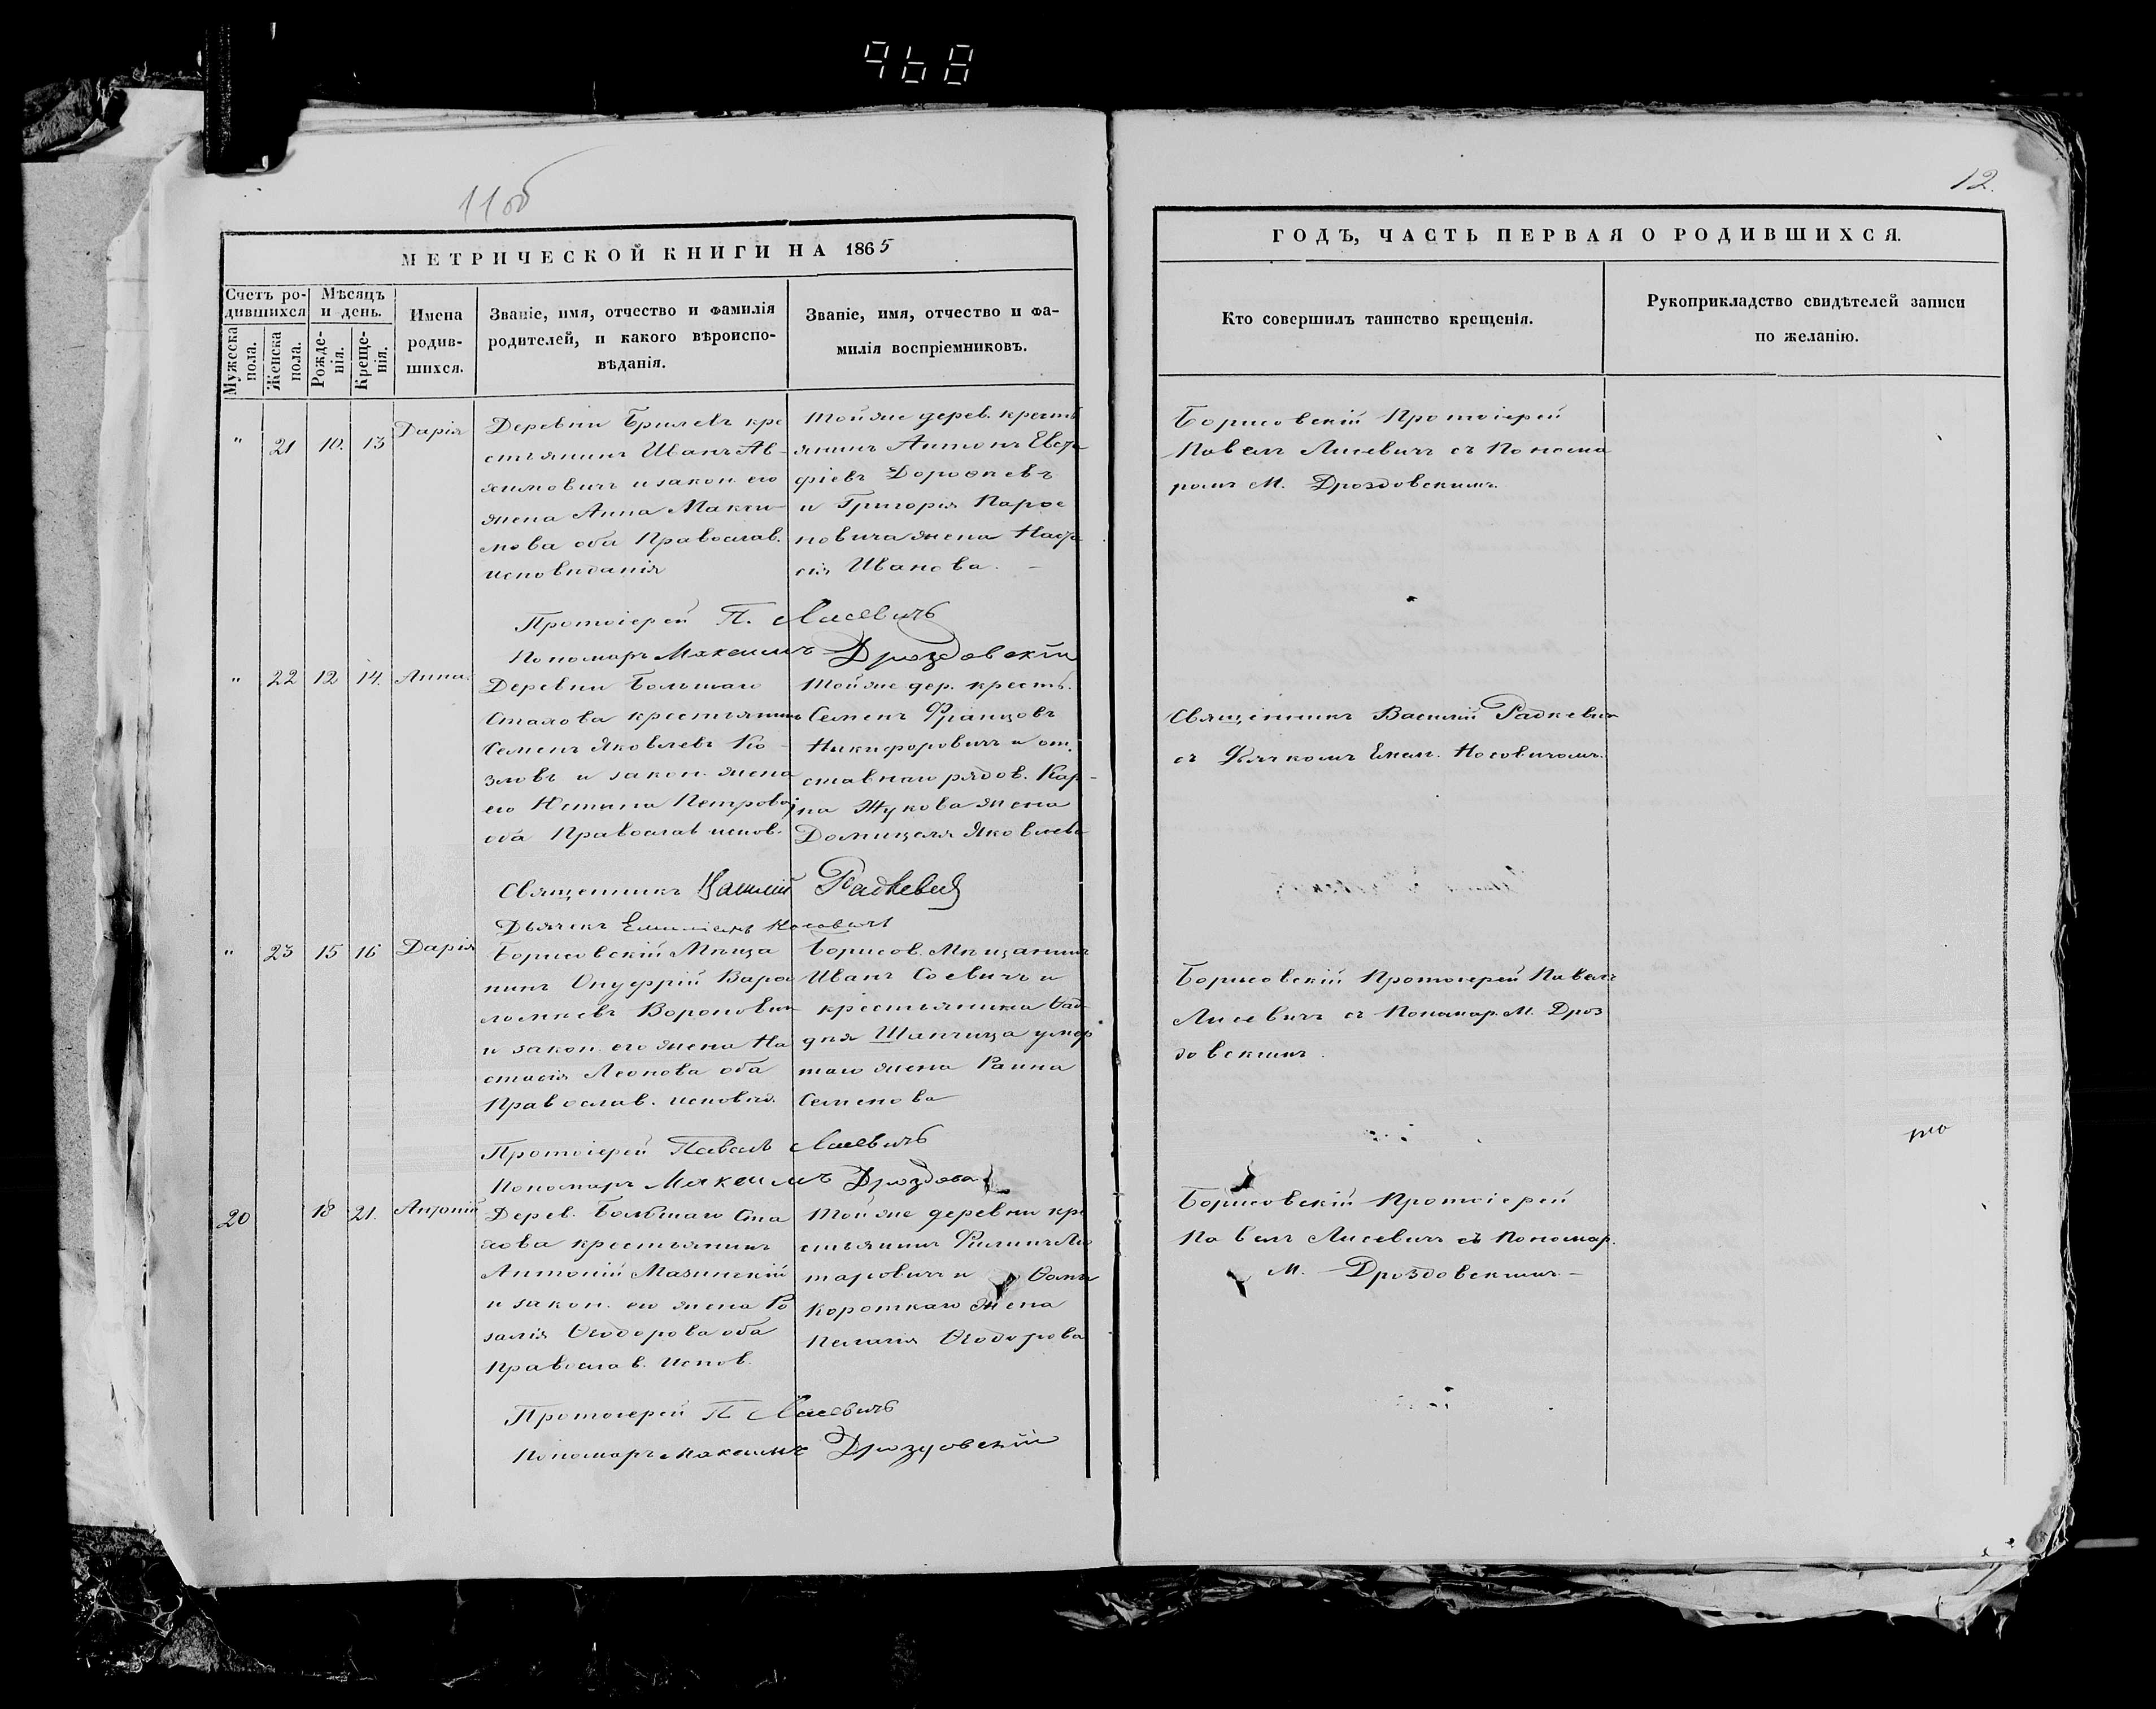 968
11об
12.
МЕТРИЧЕСКОЙ КНИГИ НА 1865
ГОДЪ, ЧАСТЬ ПЕРВАЯ О РОДИВШИХСЯ.
Счетъ ро-
дившихся
Мужеска
пола.
Женска
пола.
Мѣсяцъ
и день.
Рожде-
нія.
Креще-
нія.
Имена
родив-
шихся.
Званіе, имя, отчество и фамилія
родителей, и какого вѣроиспо-
вѣданія.
Званіе, имя, отчество и фа-
милія воспріемниковъ.
Кто совершилъ таинство крещенія.
Рукоприкладство свидѣтелей записи
по желанію.
" 21 10. 13 Дарія
Деревни Брилевъ кре
стьянинъ Иванъ Ав-
химовичъ и закон. его
жена Анна Макси-
мова оба Православ.
исповѣданія
Тойже дерев. кресть
янинъ Антонъ Евста
фіевъ Дорофеевъ
и Григорія
новича жена Наста
сія Иванова.
Борисовскій Протоіерей
Павелъ Лисевичъ съ Понома
ромъ М. Дроздовскимъ.
Протоіерей П. Лисевичъ
Пономаръ Максимъ Дроздовскій
" 22 12 14. Анна.
Деревни Большаго
Стахова крестьянинъ
Семенъ Яковлевъ Ко-
зловъ и закон. жена
его Юстина Петрова
оба Православ. испов.
Тойже дер. кресть.
Семенъ Францовъ
Никифоровичъ и от.
ставнаго рядов. Кар-
па Жукова жена
Домицеля Яковлева
Священникъ Василій Радкевичъ
съ Дьячкомъ Емел. Носовичомъ.
Священникъ Василій Радкевичъ
Дьячекъ Емиліанъ Носовичъ
" 23 15 16 Дарія
Борисовскій Мѣща
нинъ Онуфрій Варѳо
ломеевъ Вороновичъ
и закон. его жена На
стасія Леонова оба
Православ. исповѣд.
Борисов. Мѣщанинъ
Иванъ Соевичъ и
крестьянина Ѳад
дея Шапчица умер
таго жена Раина
Семенова
Борисовскій Протоіерей Павелъ
Лисевичъ съ Пономар. М. Дроз
довскимъ.
Протоіерей Павелъ Лисевичъ
Пономаръ Максимъ
20 18 21. Антоній
Дерев. Большаго Ста
хова крестьянинъ
Антоній Мазинскій
и закон. его жена Ро
залія Ѳеодорова оба
Православ. Испов.
Тойже деревни кре
стьянинъ Филипъ Ли
таровичъ и Ѳомы
Короткаго жена
Пелагія Ѳеодорова
Борисовскій Протоіерей
Павелъ Лисевичъ съ Пономар.
М. Дроздовскимъ.
Протоіерей П Лисевичъ
Пономаръ Максимъ Дроздовскій